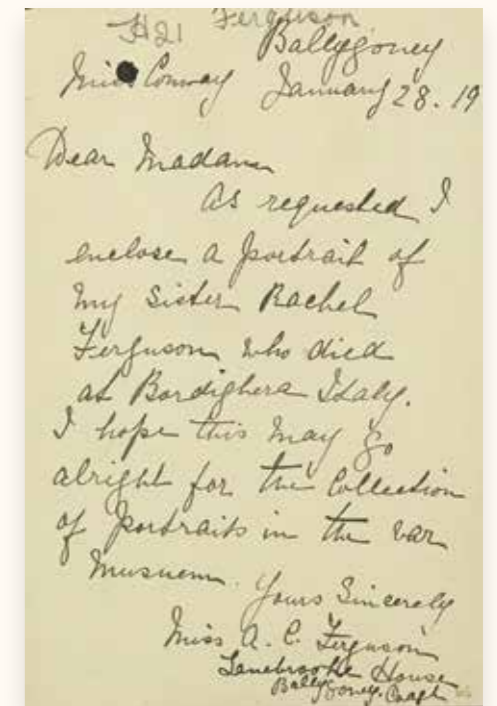 H21 Ferguson
Ballygoney
Miss Conway January 28. 19
Dear Madam
As requested I
enclose a portrait of
my Sister Rachel
Ferguson who died
at Bordighera Italy.
I hope this may go
alright for the Collection
of portraits in the war
Musuem. Yours Sincerely
Miss A. C. Ferguson
Lanebrooke House
Ballygoney. Coagh